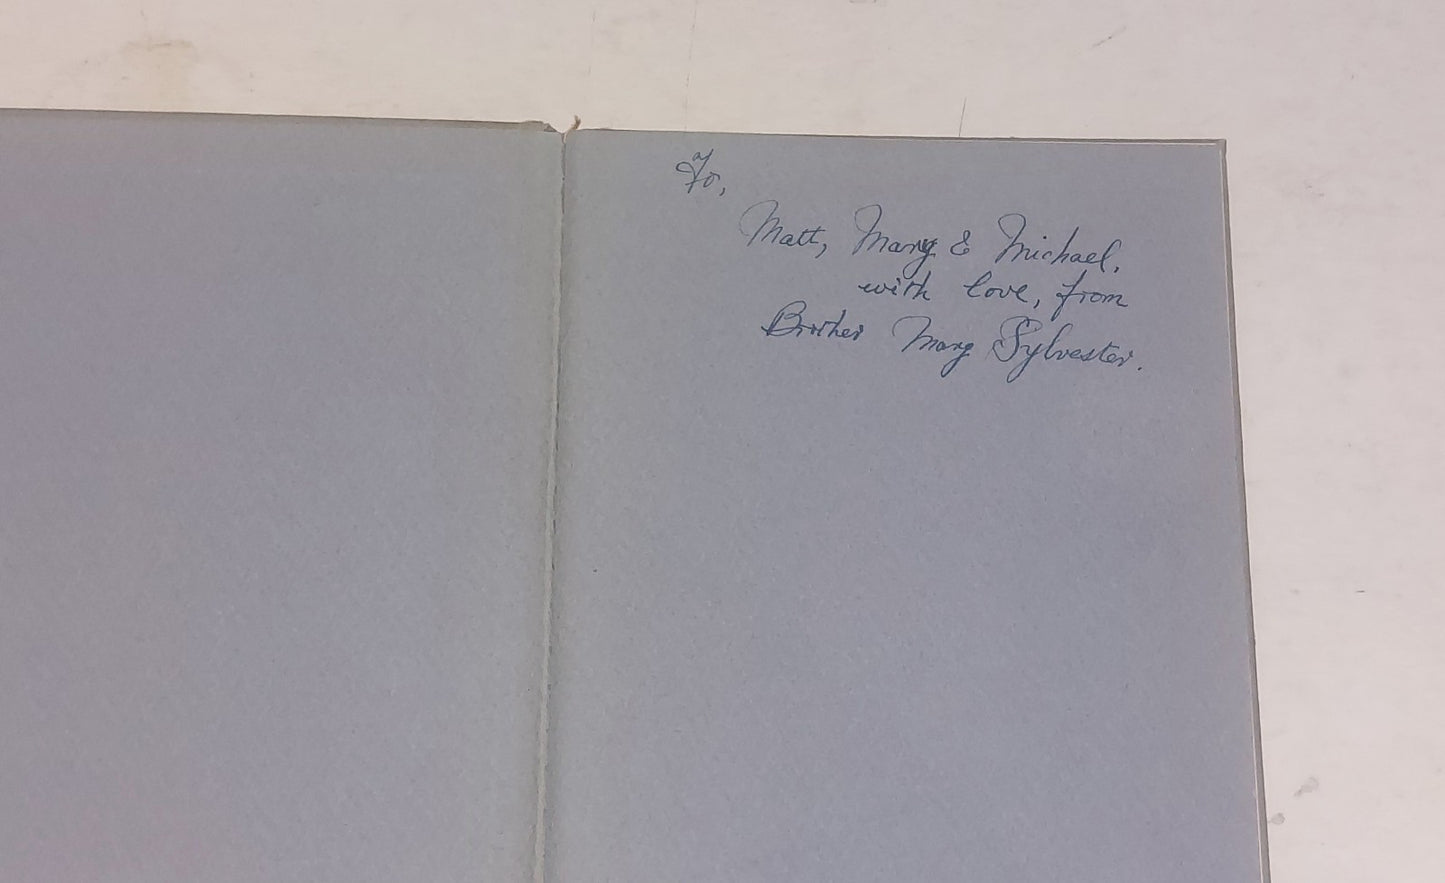 To,
Matt, Mary & Michael,
with love, from
Brother Mary Sylvester.